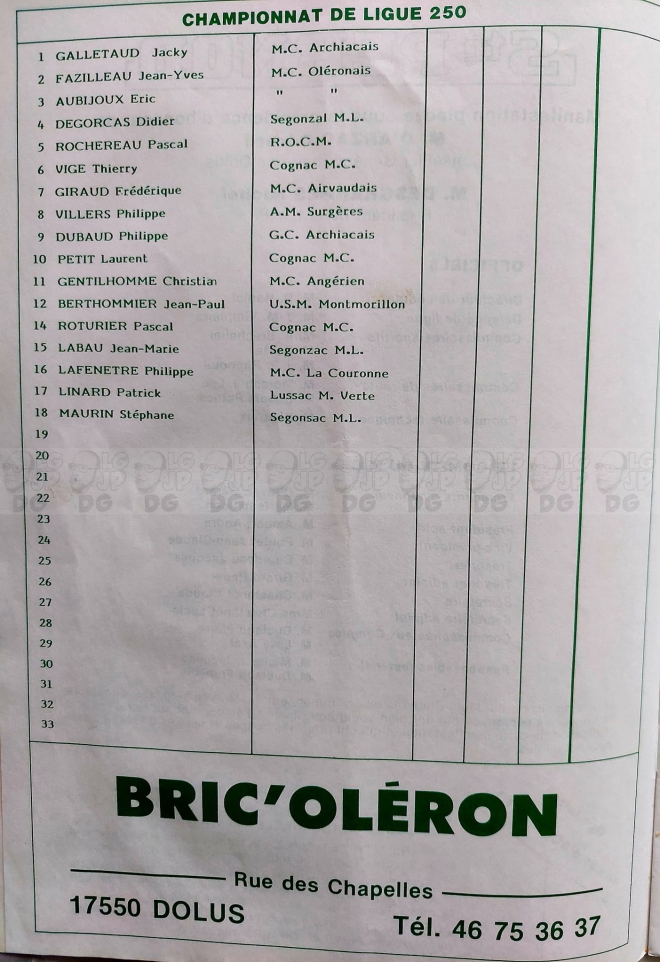 CHAMPIONNAT DE LIGUE 250
1 GALLETAUD Jacky M.C. Archiacais
2 FAZILLEAU Jean-Yves M.C. Oléronais
3 AUBIJOUX Eric " "
4 DEGORCAS Didier Segonzal M.L.
5 ROCHEREAU Pascal R.O.C.M.
6 VIGE Thierry Cognac M.C.
7 GIRAUD Frédérique M.C. Airvaudais
8 VILLERS Philippe A.M. Surgères
9 DUBAUD Philippe G.C. Archiacais
10 PETIT Laurent Cognac M.C.
11 GENTILHOMME Christian M.C. Angérien
12 BERTHOMMIER Jean-Paul U.S.M. Montmorillon
14 ROTURIER Pascal Cognac M.C.
15 LABAU Jean-Marie Segonzac M.L.
16 LAFENETRE Philippe M.C. La Couronne
17 LINARD Patrick Lussac M. Verte
18 MAURIN Stéphane Segonsac M.L.
19
20
21
22
23
24
25
26
27
28
29
30
31
32
33
BRIC'OLÉRON
Rue des Chapelles
17550 DOLUS Tél. 46 75 36 37